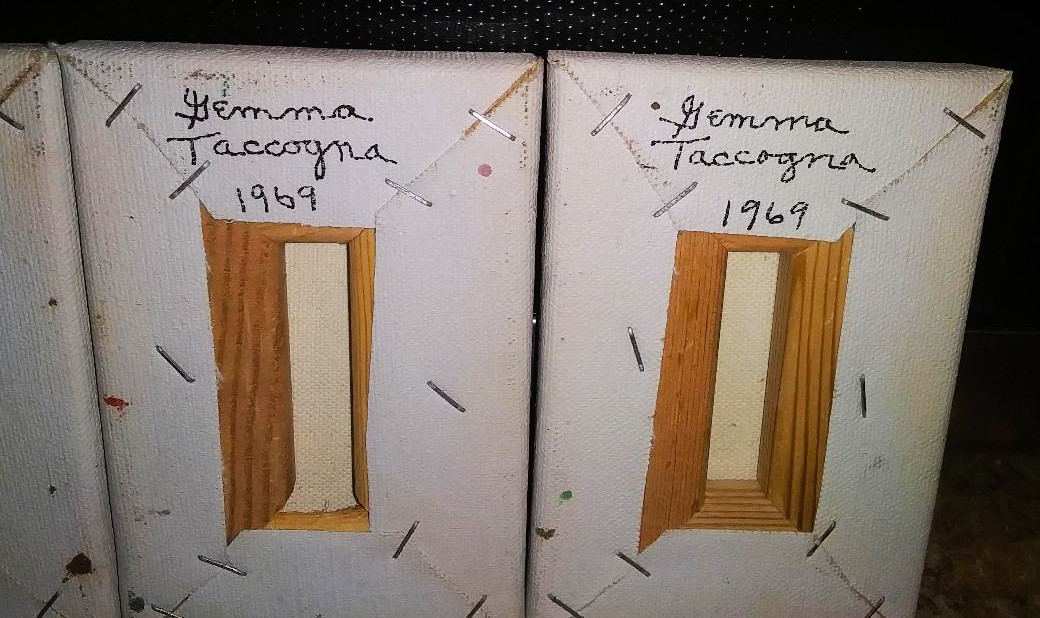 Gemma.
Taccogna
1969
Gemma
Taccogna
1969